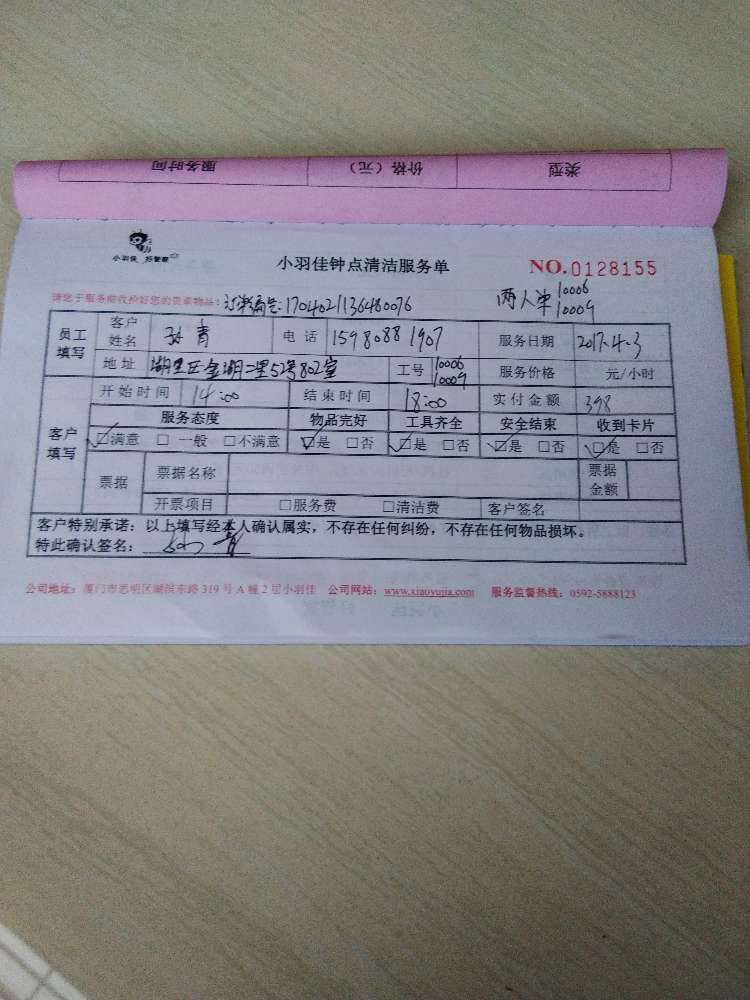 服务时间 价格（元） 类型
小羽佳 好管家
小羽佳钟点清洁服务单
NO.0128155
请您于服务前收拾好您的贵重物品：订单编号:1704021136480076
两人单 10006
10009
员工填写 客户姓名 孙青 电话 15980881907 服务日期 2017.4.3
地址 湖里区金湖二里52号802室 工号 10006 10009 服务价格 元/小时
客户填写 开始时间 14:00 结束时间 18:00 实付金额 398
服务态度 物品完好 工具齐全 安全结束 收到卡片
☑满意 □一般 □不满意 ☑是 □否 ☑是 □否 ☑是 □否 ☑是 □否
票据 票据名称 票据金额
开票项目 □服务费 □清洁费 客户签名
客户特别承诺：以上填写经本人确认属实，不存在任何纠纷，不存在任何物品损坏。
特此确认签名： 孙青
公司地址：厦门市思明区湖滨东路319号A幢2星小羽佳 公司网站：www.xiaoyujia.com 服务监督热线：0592-5888123